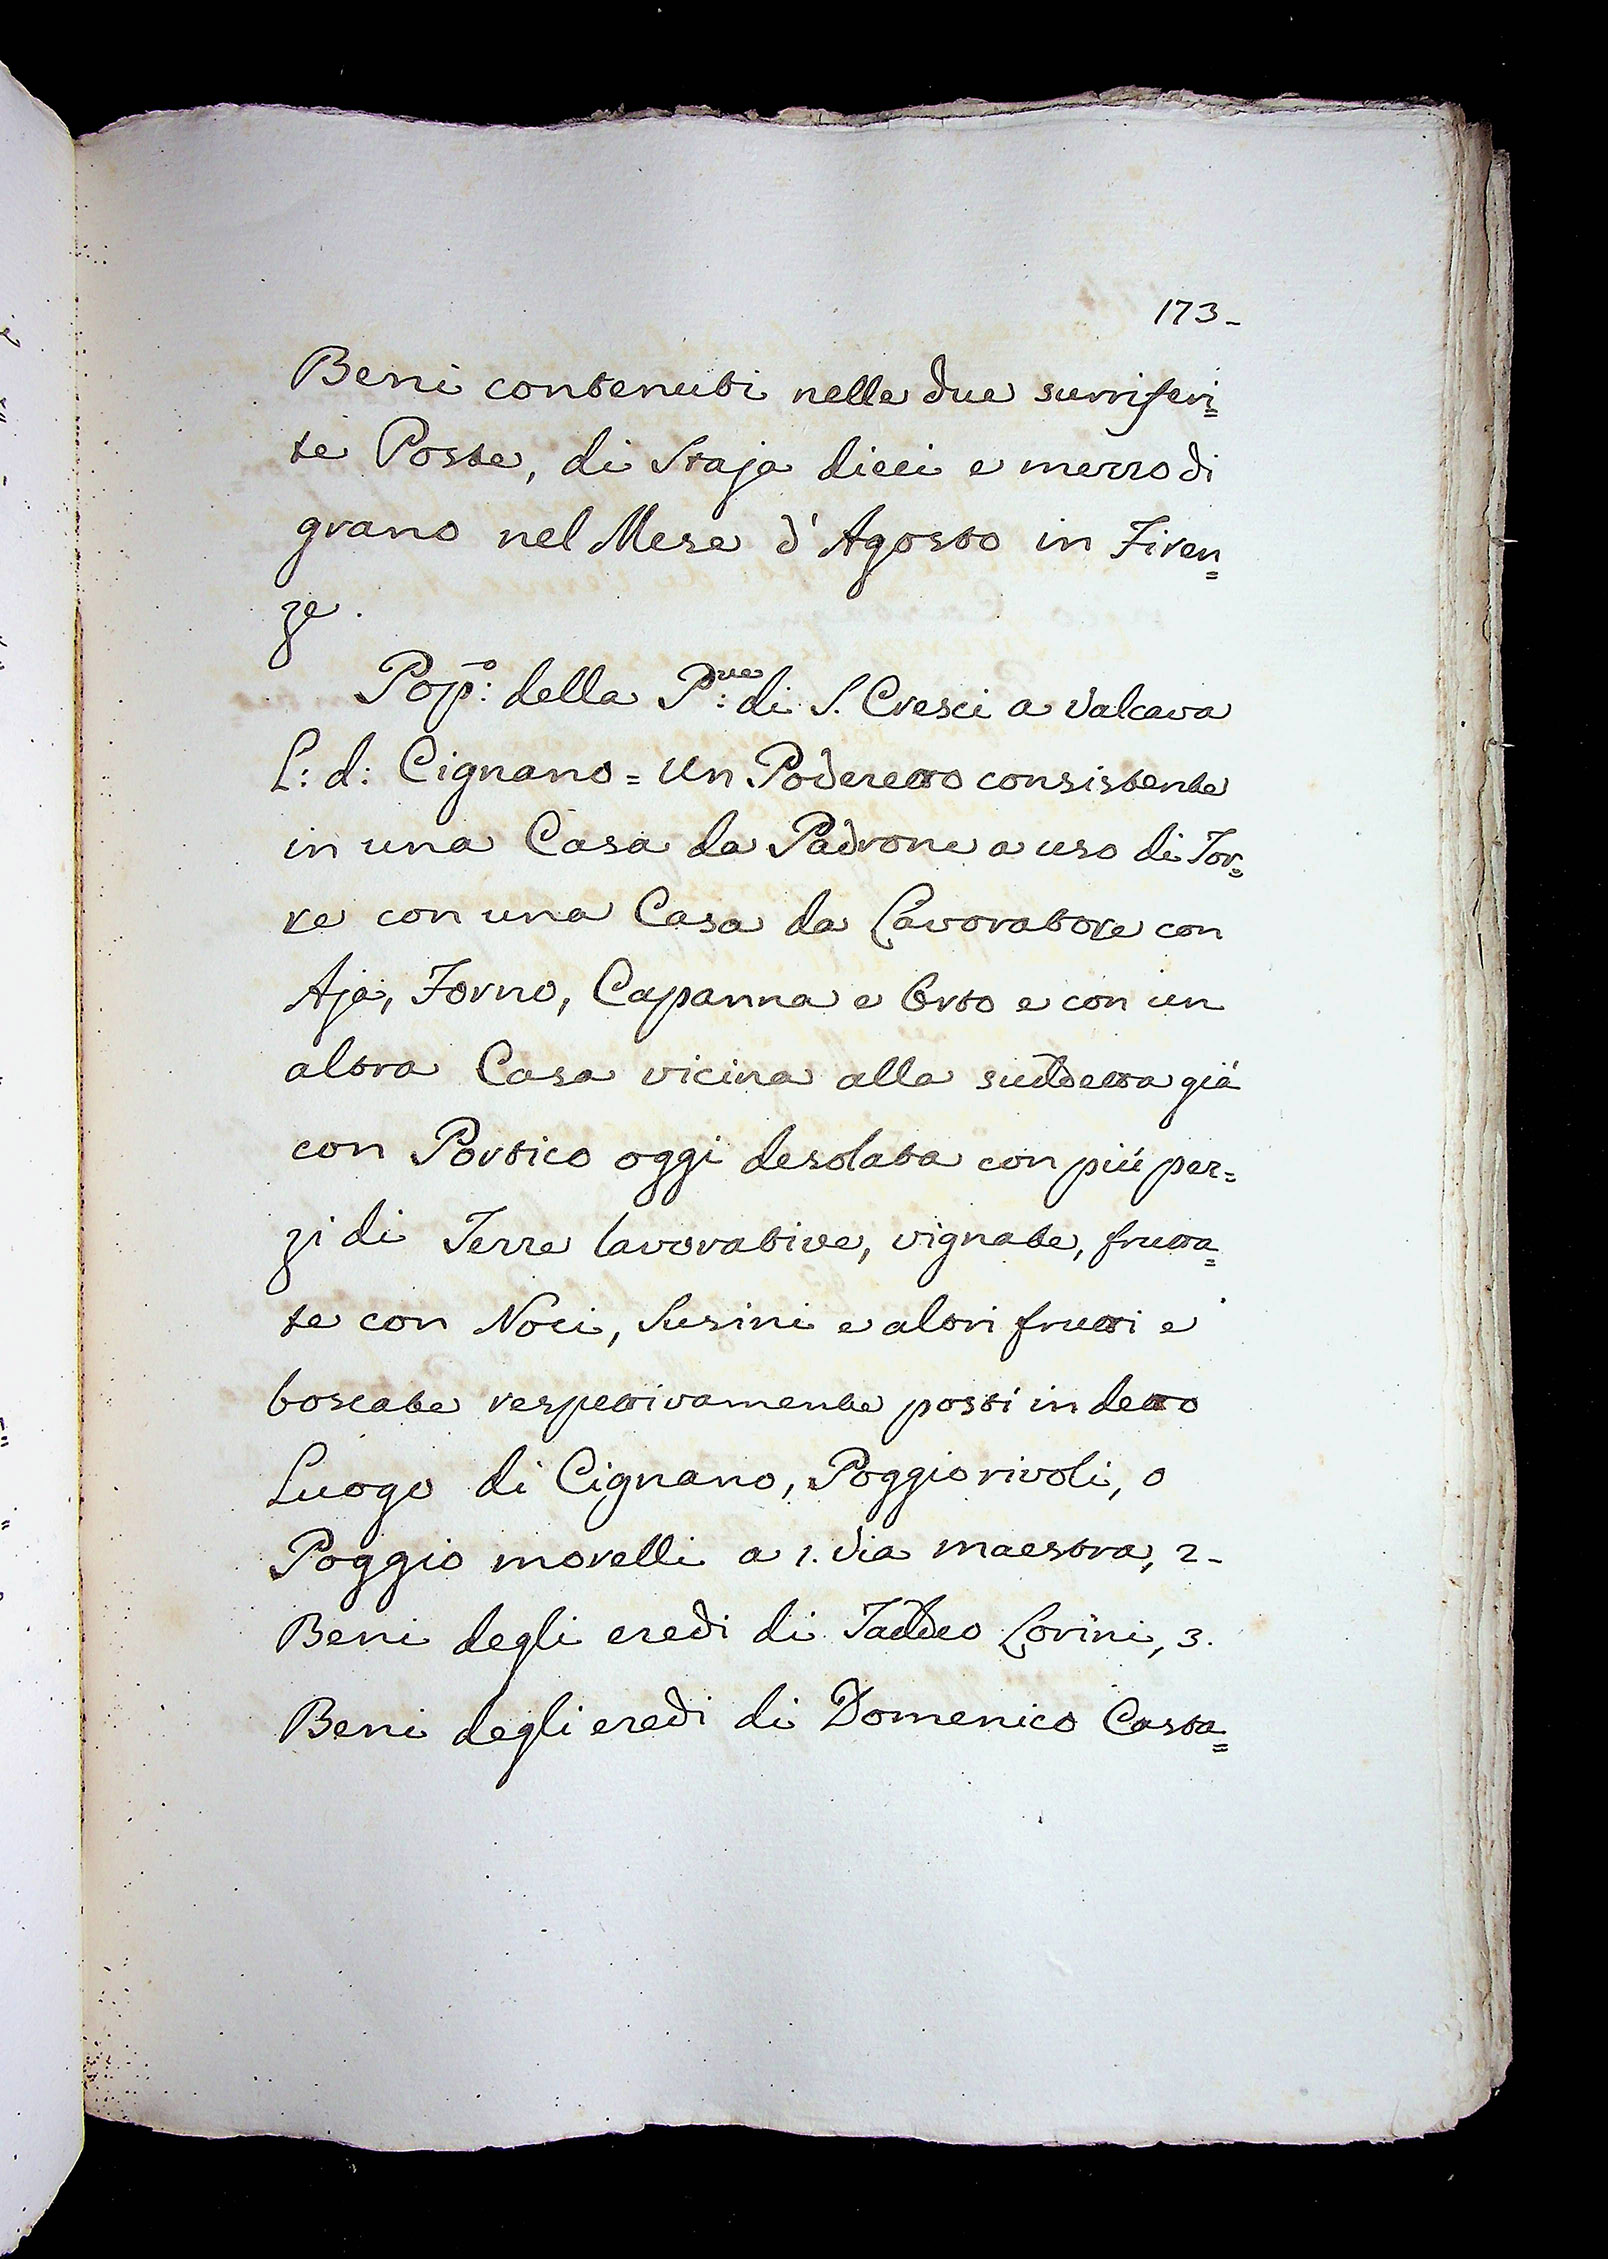 173-
Beni contenuti nelle due surriferi=
te Poste, di Staja dieci e mezzo di
grano nel Mese d'Agosto in Firen=
ze.
Pop:º della P:ve di S. Cresci a Valcava
L: d: Cignano = Un Poderetto consistente
in una Casa da Padrone a uso di Tor=
re con una Casa da Lavoratore con
Aja, Forno, Capanna e Orto e con un
altra Casa vicina alla suddetta già
con Portico oggi desolata con più pez=
zi di Terre lavorative, vignate, frutta=
te con Noci, Susini e altri frutti e
boscate respettivamente posti in detto
Luogo di Cignano, Poggiorivoli, o
Poggio morelli a 1. Via maestra, 2-
Beni degli eredi di Taddeo Lorini, 3.
Beni degli eredi di Domenico Casta=